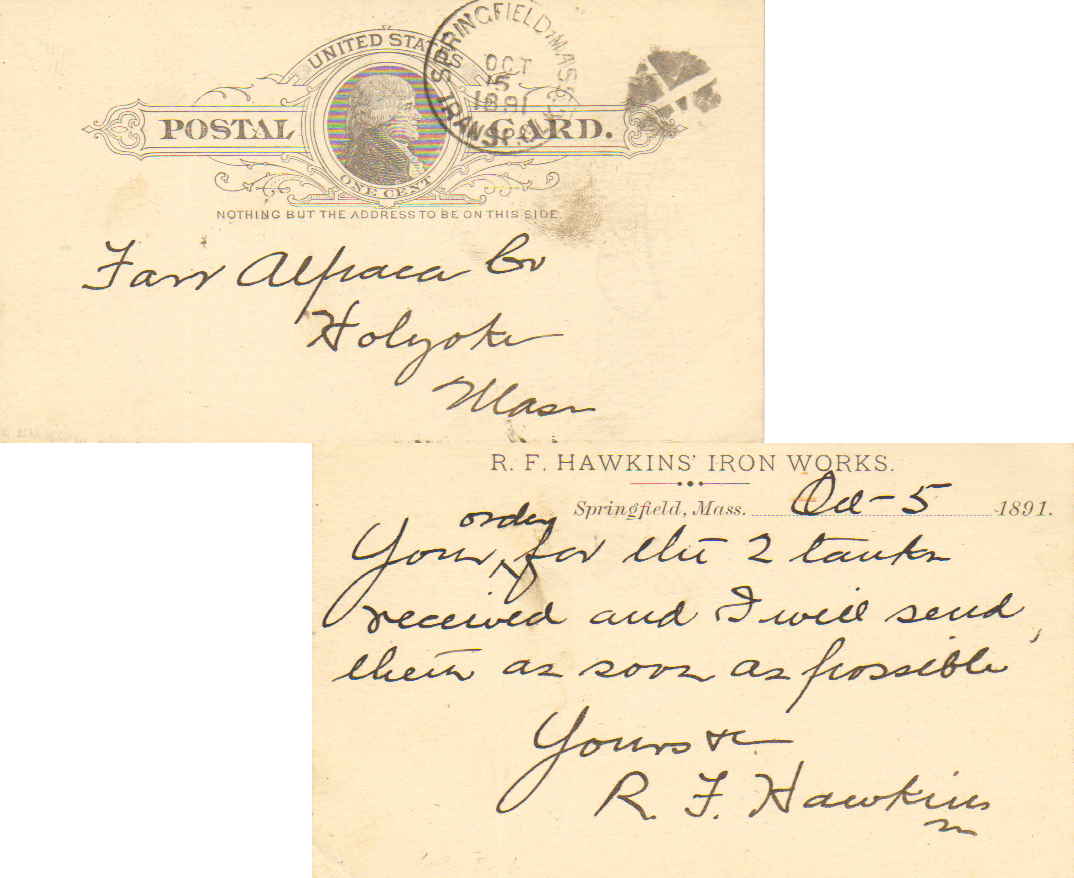 UNITED STATES
POSTAL CARD.
ONE CENT
NOTHING BUT THE ADDRESS TO BE ON THIS SIDE.
SPRINGFIELD, MASS.
OCT
5
1891
Farr Alpaca Co
Holyoke
Mass
R. F. HAWKINS' IRON WORKS.
Springfield, Mass. Oct - 5 1891.
order
Your ^ for the 2 tanks
received and I will send
them as soon as possible
Yours &c
R. F. Hawkins